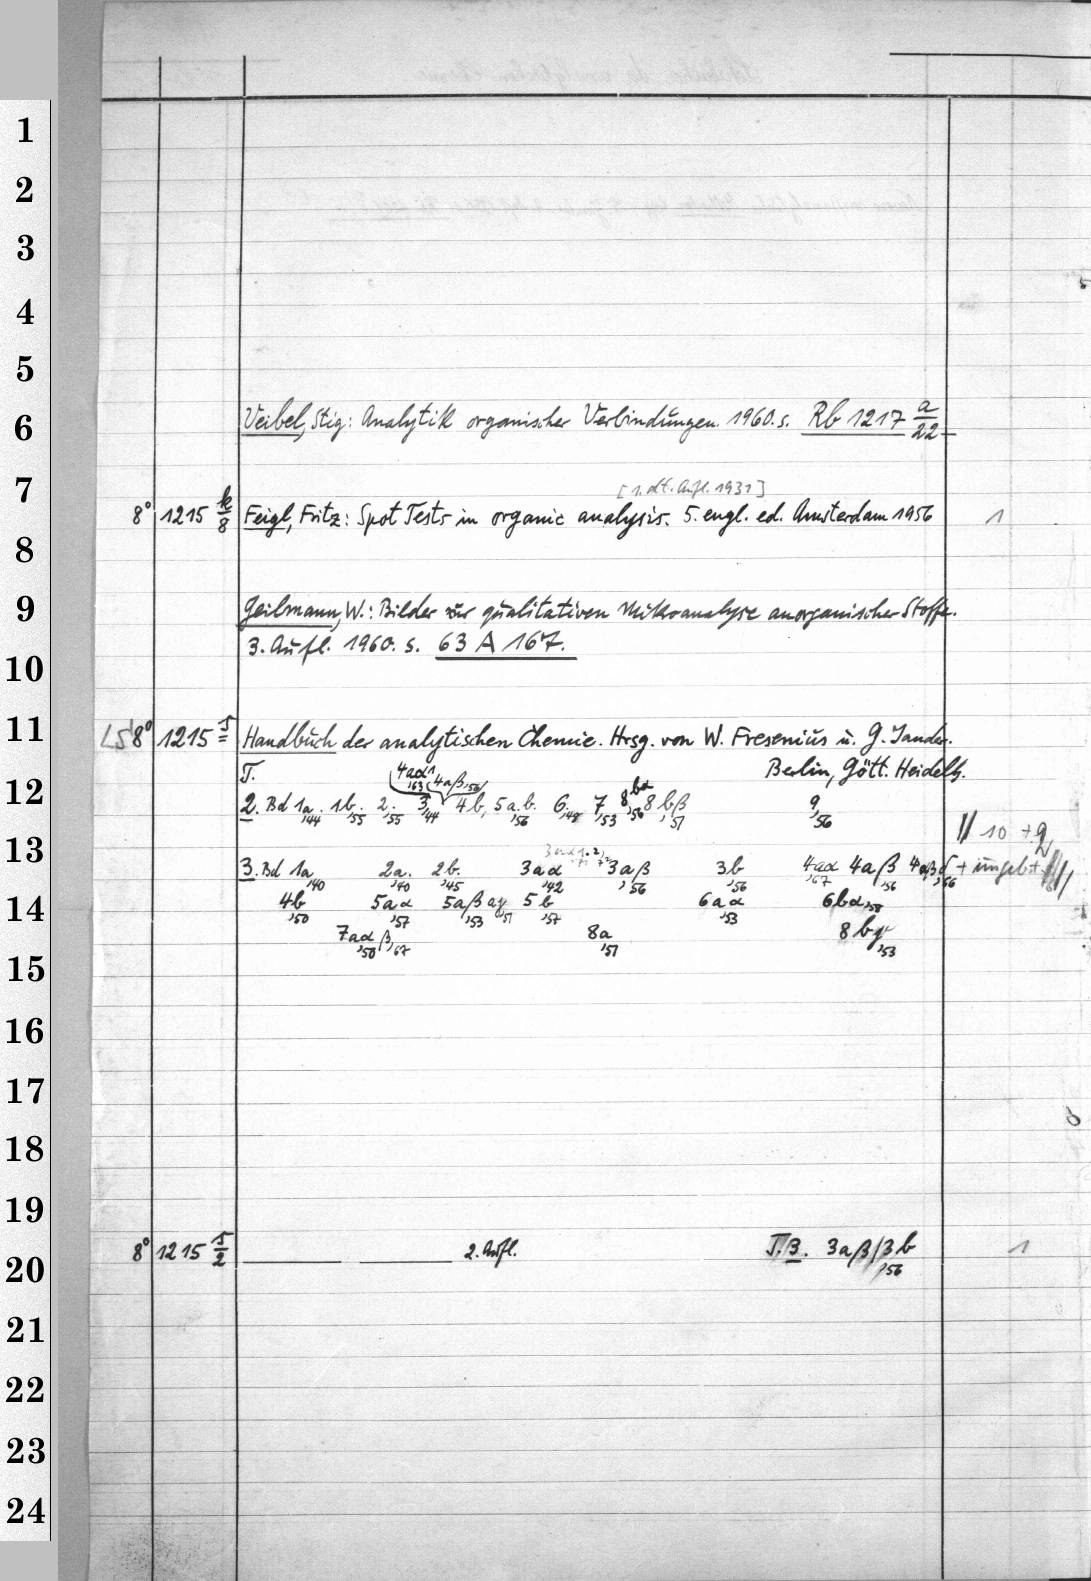 1
2
3
4
5
6
Veibel, Stig: Analytik organischer Verbindungen. 1960. s. Rb 1217 a/22
7
[1. dt. Aufl. 1931]
8° 1215 k/8 Feigl, Fritz: Spot Tests in organic analysis. 5. engl. ed. Amsterdam 1956 1
8
9
Geilmann, W.: Bilder zur qualitativen Mikroanalyse anorganischer Stoffe.
3. Aufl. 1960. s. 63 A 167.
10
11
LS 8° 1215 s Handbuch der analytischen Chemie. Hrsg. von W. Fresenius u. G. Jander.
T. Berlin, Gött. Heidelb.
12
4aα1,'63 4aβ,'50
2. Bd 1a,'44 1b,'55 2,'55 3,'44 4b, 5a.b.,'56 6,'48 7,'53 8bα,'56 8bβ,'51 9,'56
10 + 9
13
3. Bd 1a,'40 2a,'40 2b,'45 3aα,'42 3aβ,'56 3b,'56 4aα,'67 4aβ,'56 + ungeb.
14
4b,'50 5aα,'57 5aβ,'53 aγ,'51 5b,'57 6aα,'53 6bα,'58
7aα,'50 β,'67 8a,'51 8bγ,'53
15
16
17
18
19
8° 1215 s/2 2. Aufl. T.3. 3aβ/3b,'56 1
20
21
22
23
24